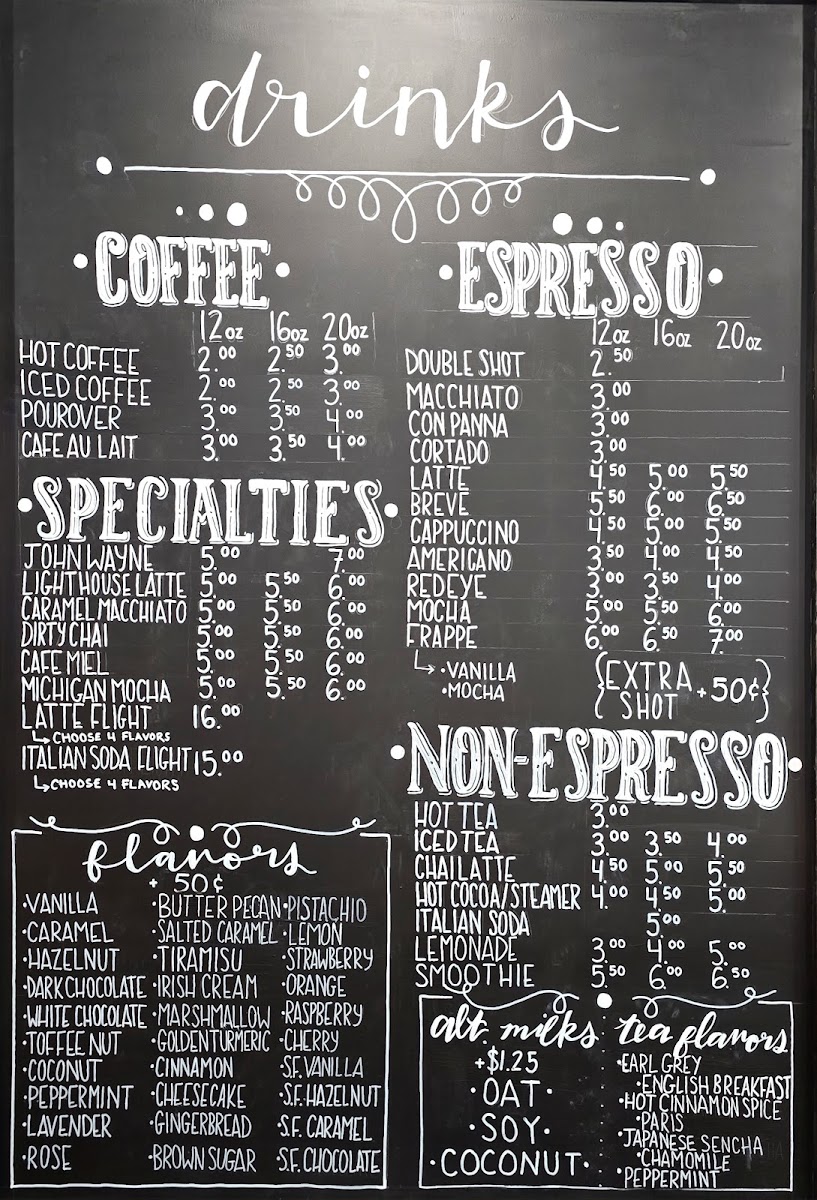 drinks
COFFEE
12oz 16oz 20oz
HOT COFFEE 2.00 2.50 3.00
ICED COFFEE 2.00 2.50 3.00
POUROVER 3.00 3.50 4.00
CAFE AU LAIT 3.00 3.50 4.00
SPECIALTIES
JOHN WAYNE 5.00 7.00
LIGHTHOUSE LATTE 5.00 5.50 6.00
CARAMEL MACCHIATO 5.00 5.50 6.00
DIRTY CHAI 5.00 5.50 6.00
CAFE MIEL 5.00 5.50 6.00
MICHIGAN MOCHA 5.00 5.50 6.00
LATTE FLIGHT 16.00
↳CHOOSE 4 FLAVORS
ITALIAN SODA FLIGHT 15.00
↳CHOOSE 4 FLAVORS
flavors
+50¢
•VANILLA •BUTTER PECAN •PISTACHIO
•CARAMEL •SALTED CARAMEL •LEMON
•HAZELNUT •TIRAMISU •STRAWBERRY
•DARK CHOCOLATE •IRISH CREAM •ORANGE
•WHITE CHOCOLATE •MARSHMALLOW •RASPBERRY
•TOFFEE NUT •GOLDEN TURMERIC •CHERRY
•COCONUT •CINNAMON •S.F. VANILLA
•PEPPERMINT •CHEESECAKE •S.F. HAZELNUT
•LAVENDER •GINGERBREAD •S.F. CARAMEL
•ROSE •BROWN SUGAR •S.F. CHOCOLATE
ESPRESSO
12oz 16oz 20oz
DOUBLE SHOT 2.50
MACCHIATO 3.00
CON PANNA 3.00
CORTADO 3.00
LATTE 4.50 5.00 5.50
BREVE 5.50 6.00 6.50
CAPPUCCINO 4.50 5.00 5.50
AMERICANO 3.50 4.00 4.50
REDEYE 3.00 3.50 4.00
MOCHA 5.00 5.50 6.00
FRAPPE 6.00 6.50 7.00
↳•VANILLA
•MOCHA
{EXTRA SHOT +50¢}
NON-ESPRESSO
HOT TEA 3.00
ICED TEA 3.00 3.50 4.00
CHAI LATTE 4.50 5.00 5.50
HOT COCOA/STEAMER 4.00 4.50 5.00
ITALIAN SODA 5.00
LEMONADE 3.00 4.00 5.00
SMOOTHIE 5.50 6.00 6.50
alt. milks
+$1.25
•OAT•
•SOY•
•COCONUT•
tea flavors
•EARL GREY
•ENGLISH BREAKFAST
•HOT CINNAMON SPICE
•PARIS
•JAPANESE SENCHA
•CHAMOMILE
•PEPPERMINT